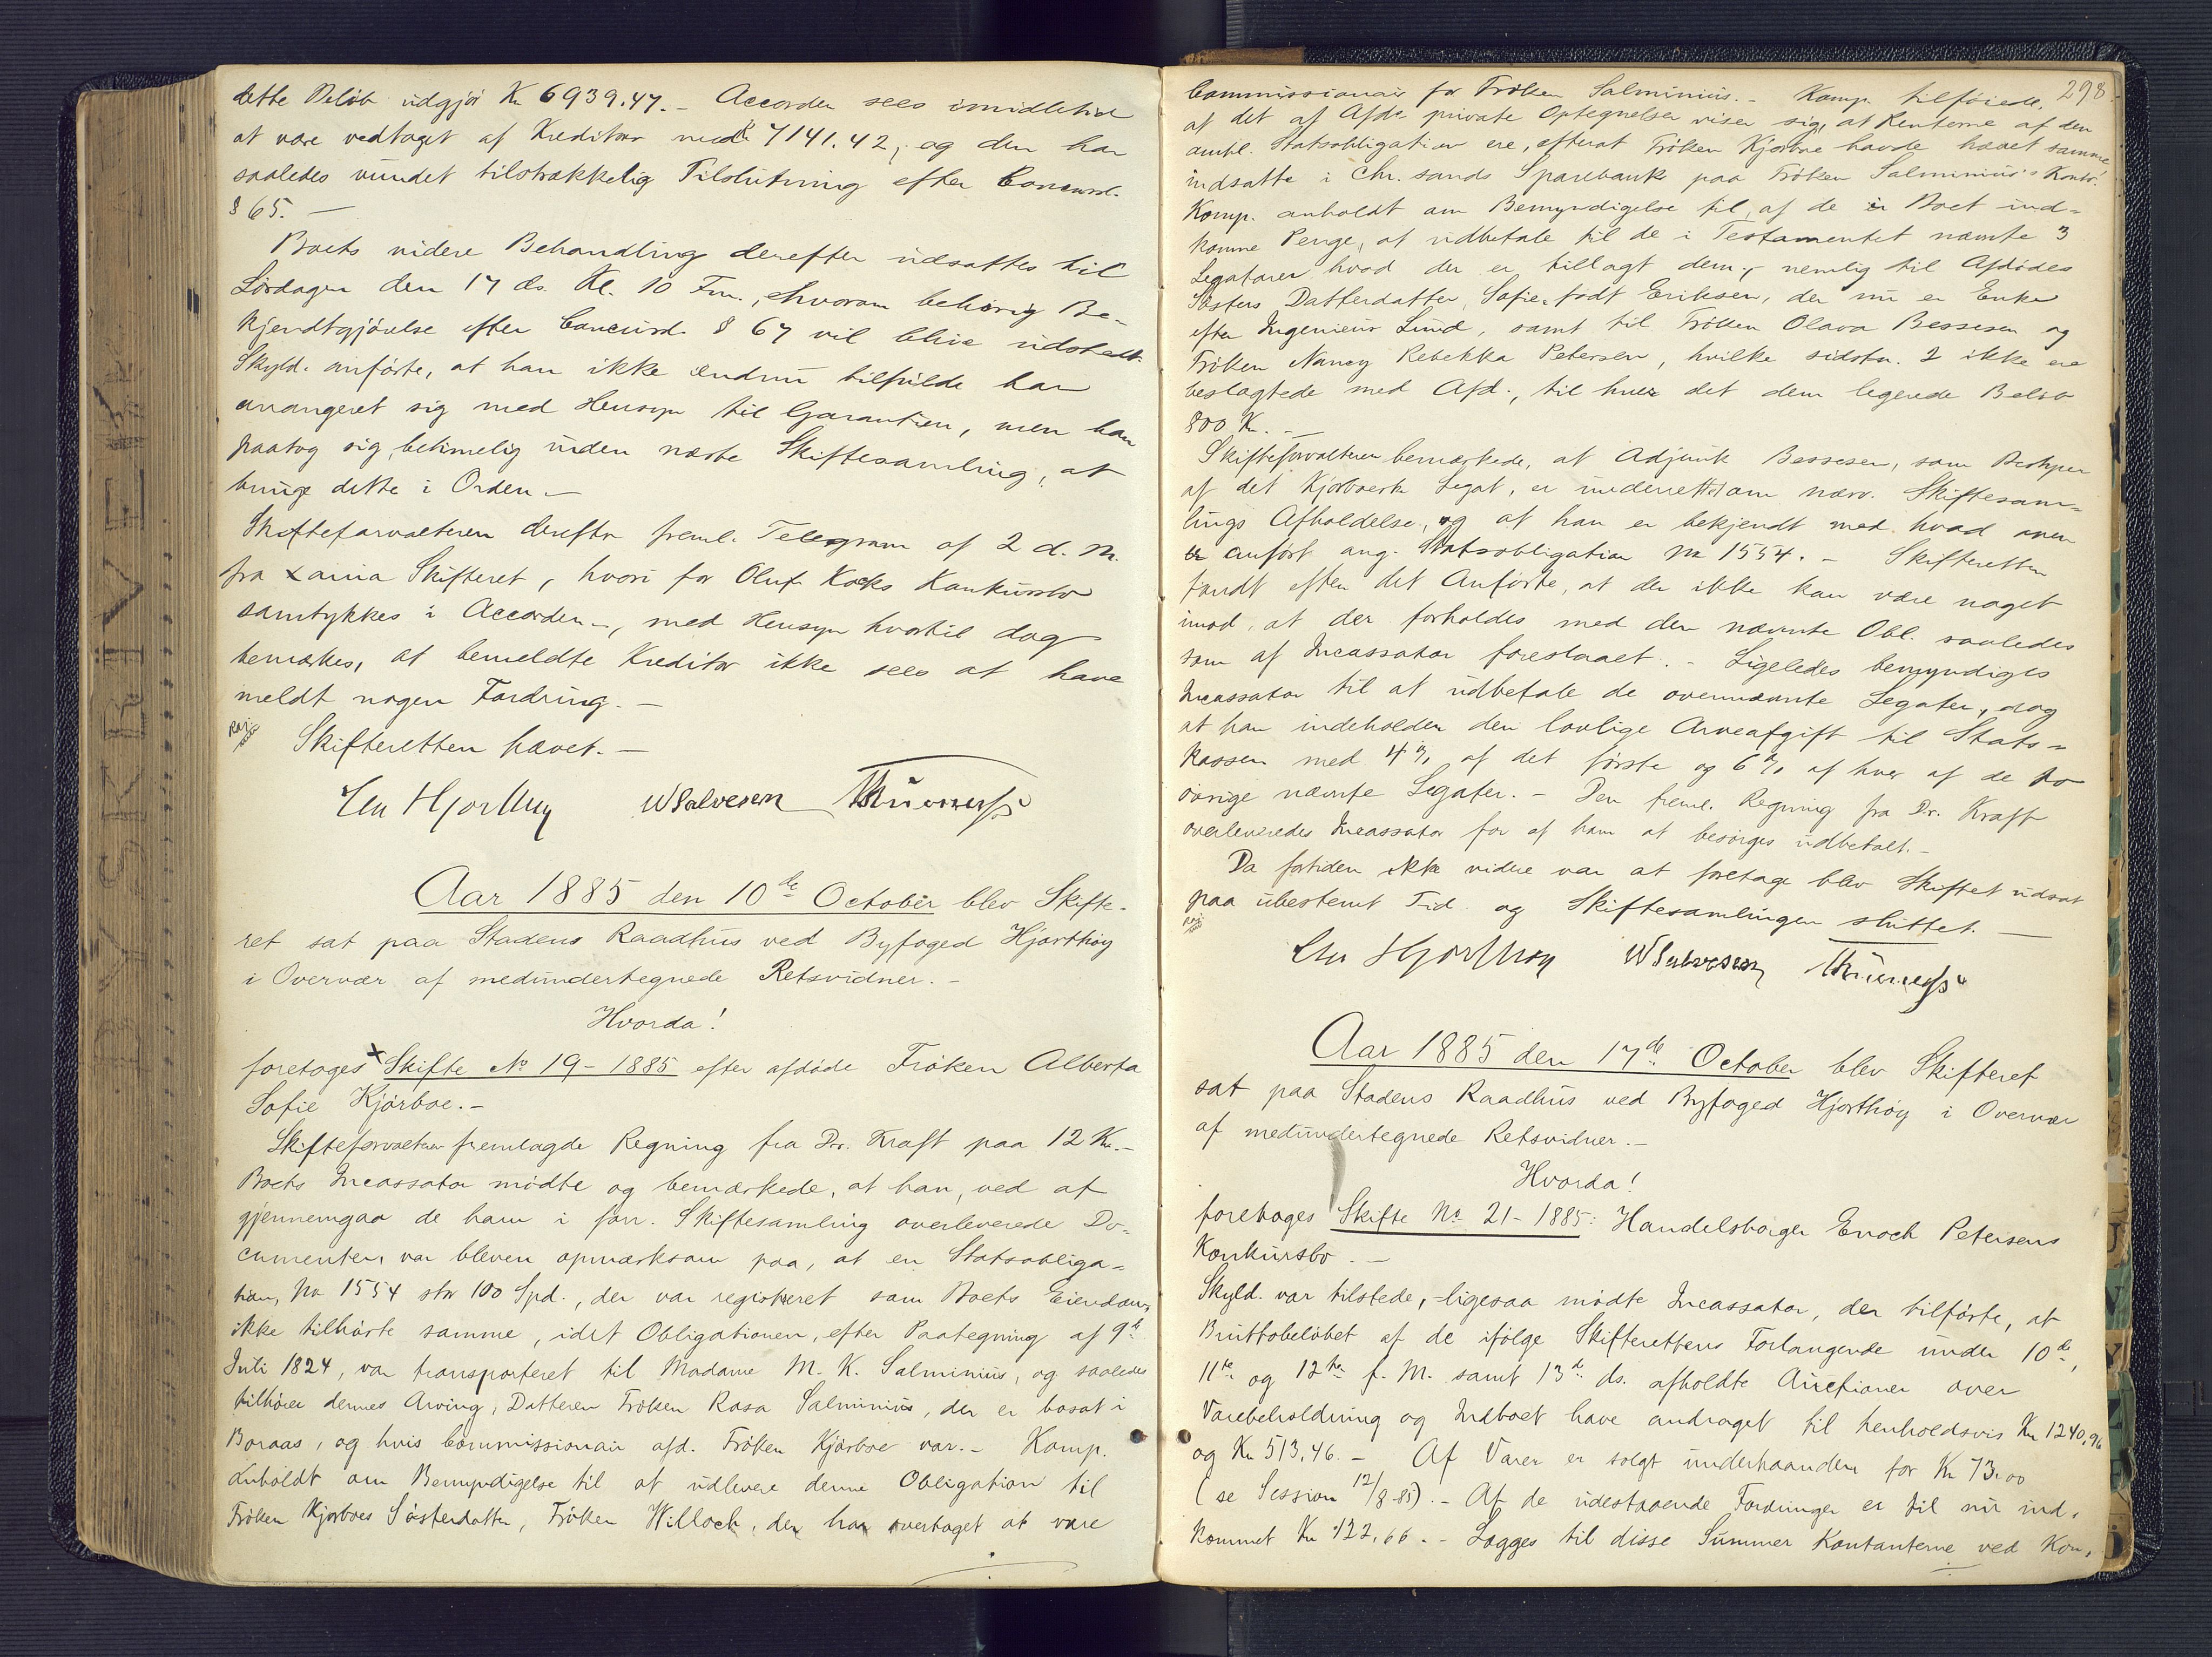 dette Beløb udgjør Kr 6939.47. – Accorden sees imidlertid
at være vedtaget af Kreditorer med Kr 7141.42, og den har
saaledes vundet tilstrækkelig Tilslutning efter Concursl.
§ 65. –
Boets videre Behandling derefter udsattes til
Lørdagen den 17 ds. Kl. 10 Fm., hvorom behørig Be-
kjendtgjørelse efter Concursl. § 67 vil blive udstedt.
Skyld. anførte, at han ikke endnu tilfulde har
arrangeret sig med Hensyn til Garantien, men han
paatog sig, betimelig inden næste Skiftesamling, at
bringe dette i Orden. –
Skifteforvalteren derefter freml. Telegram af 2 d. M.
fra Skifteret, hvori for Oluf Kocks Konkursbo
samtykkes i Accorden –, med Hensyn hvortil dog
bemærkes, at bemeldte Kreditor ikke sees at have
meldt nogen Fordring. –
Skifteretten hævet. –
Chr Hjorthøy WSalvesen
Aar 1885 den 10de October blev Skifte-
ret sat paa Stadens Raadhus ved Byfoged Hjorthøy
i Overvær af medundertegnede Retsvidner. –
Hvorda!
foretoges Skifte No 19 – 1885 efter afdøde Frøken Alberta
Sofie Kjørboe. –
Skifteforvalteren fremlagde Regning fra Dr. Kraft paa 12 Kr. –
Boets Incassator mødte og bemærkede, at han, ved at
gjennemgaa de ham i forr. Skiftesamling overleverede Do-
cumenter, var bleven opmærksom paa, at en Statsobliga-
tion, No 1554 stor 100 Spd., der var registreret som Boets Eiendom,
ikke tilhørte samme, idet Obligationen, efter Paategning af 9de
Juli 1824, var transporteret til Madame M. K. Salminius, og saaledes
tilhører dennes Arving, Datteren Frøken Rosa Salminius, der er bosat i
Boraas, og hvis Commissionair afd. Frøken Kjørboe var. – Komp.
anholdt om Bemyndigelse til at udlevere denne Obligation til
Frøken Kjørboes Søsterdatter, Frøken Willoch, der har overtaget at være
298.
Commissionair for Frøken Salminius. – Komp. tilføiede,
at det af Afdes private Optegnelser viser sig, at Renterne af den
omhl. Statsobligation ere, efterat Frøken Kjørboe havde hævet samme
indsatte i Chr.sands Sparebank paa Frøken Salminius's Konto.
Komp. anholdt om Bemyndigelse til, af de i Boet ind-
komne Penge, at udbetale til de i Testamentet nævnte 3
Legatarer hvad der er tillagt dem, nemlig til Afdødes
Søsters Datterdatter, Sofie, født Eriksen, der nu er Enke
efter Ingeniør Lund, samt til Frøken Olava Bessesen og
Frøken Nancy Rebekka Petersen, hvilke sidstn. 2 ikke ere
beslægtede med Afd., til hver det dem legerede Beløb
800 Kr. –
Skifteforvalteren bemærkede, at Adjunkt Bessesen, som Bestyrer
af det Kjørboeske Legat, er underrettet om nærv. Skiftesam-
lings Afholdelse, og at han er bekjendt med hvad oven
er anført ang. Statsobligation No 1554. – Skifteretten
fandt efter det Anførte, at der ikke kan være noget
imod, at der forholdes med den nævnte Obl. saaledes
som af Incassator foreslaaet. – Ligeledes bemyndiges
Incassator til at udbetale de ovennævnte Legater, dog
at han indeholder den lovlige Arveafgift til Stats-
kassen med 4% af det første og 6% af hver af de to
øvrige nævnte Legater. – Den freml. Regning fra Dr. Kraft
overleveredes Incassator for af ham at besørges udbetalt. –
Da fortiden ikke videre var at foretage blev Skiftet udsat
paa ubestemt Tid og Skiftesamlingen sluttet. –
Chr Hjorthøy WSalvesen
Aar 1885 den 17de October blev Skifteret
sat paa Stadens Raadhus ved Byfoged Hjorthøy i Overvær
af medundertegnede Retsvidner. –
Hvorda!
foretoges Skifte No 21 – 1885: Handelsborger Enoch Petersens
Konkursbo. –
Skyld. var tilstede, – ligesaa mødte Incassator, der tilførte, at
Bruttobeløbet af de ifølge Skifterettens Forlangende under 10de,
11te og 12te f. M. samt 13de ds. afholdte Auctioner over
Varebeholdning og Indboet have andraget til henholdsvis Kr 1240,96
og Kr 513,46. – Af Varer er solgt underhaanden for Kr 73.00
(se Session 12/8-85). – Af de udestaaende Fordringer er til nu ind-
kommet Kr 122,66. – Lægges til disse Summer Kontanterne ved Kon-